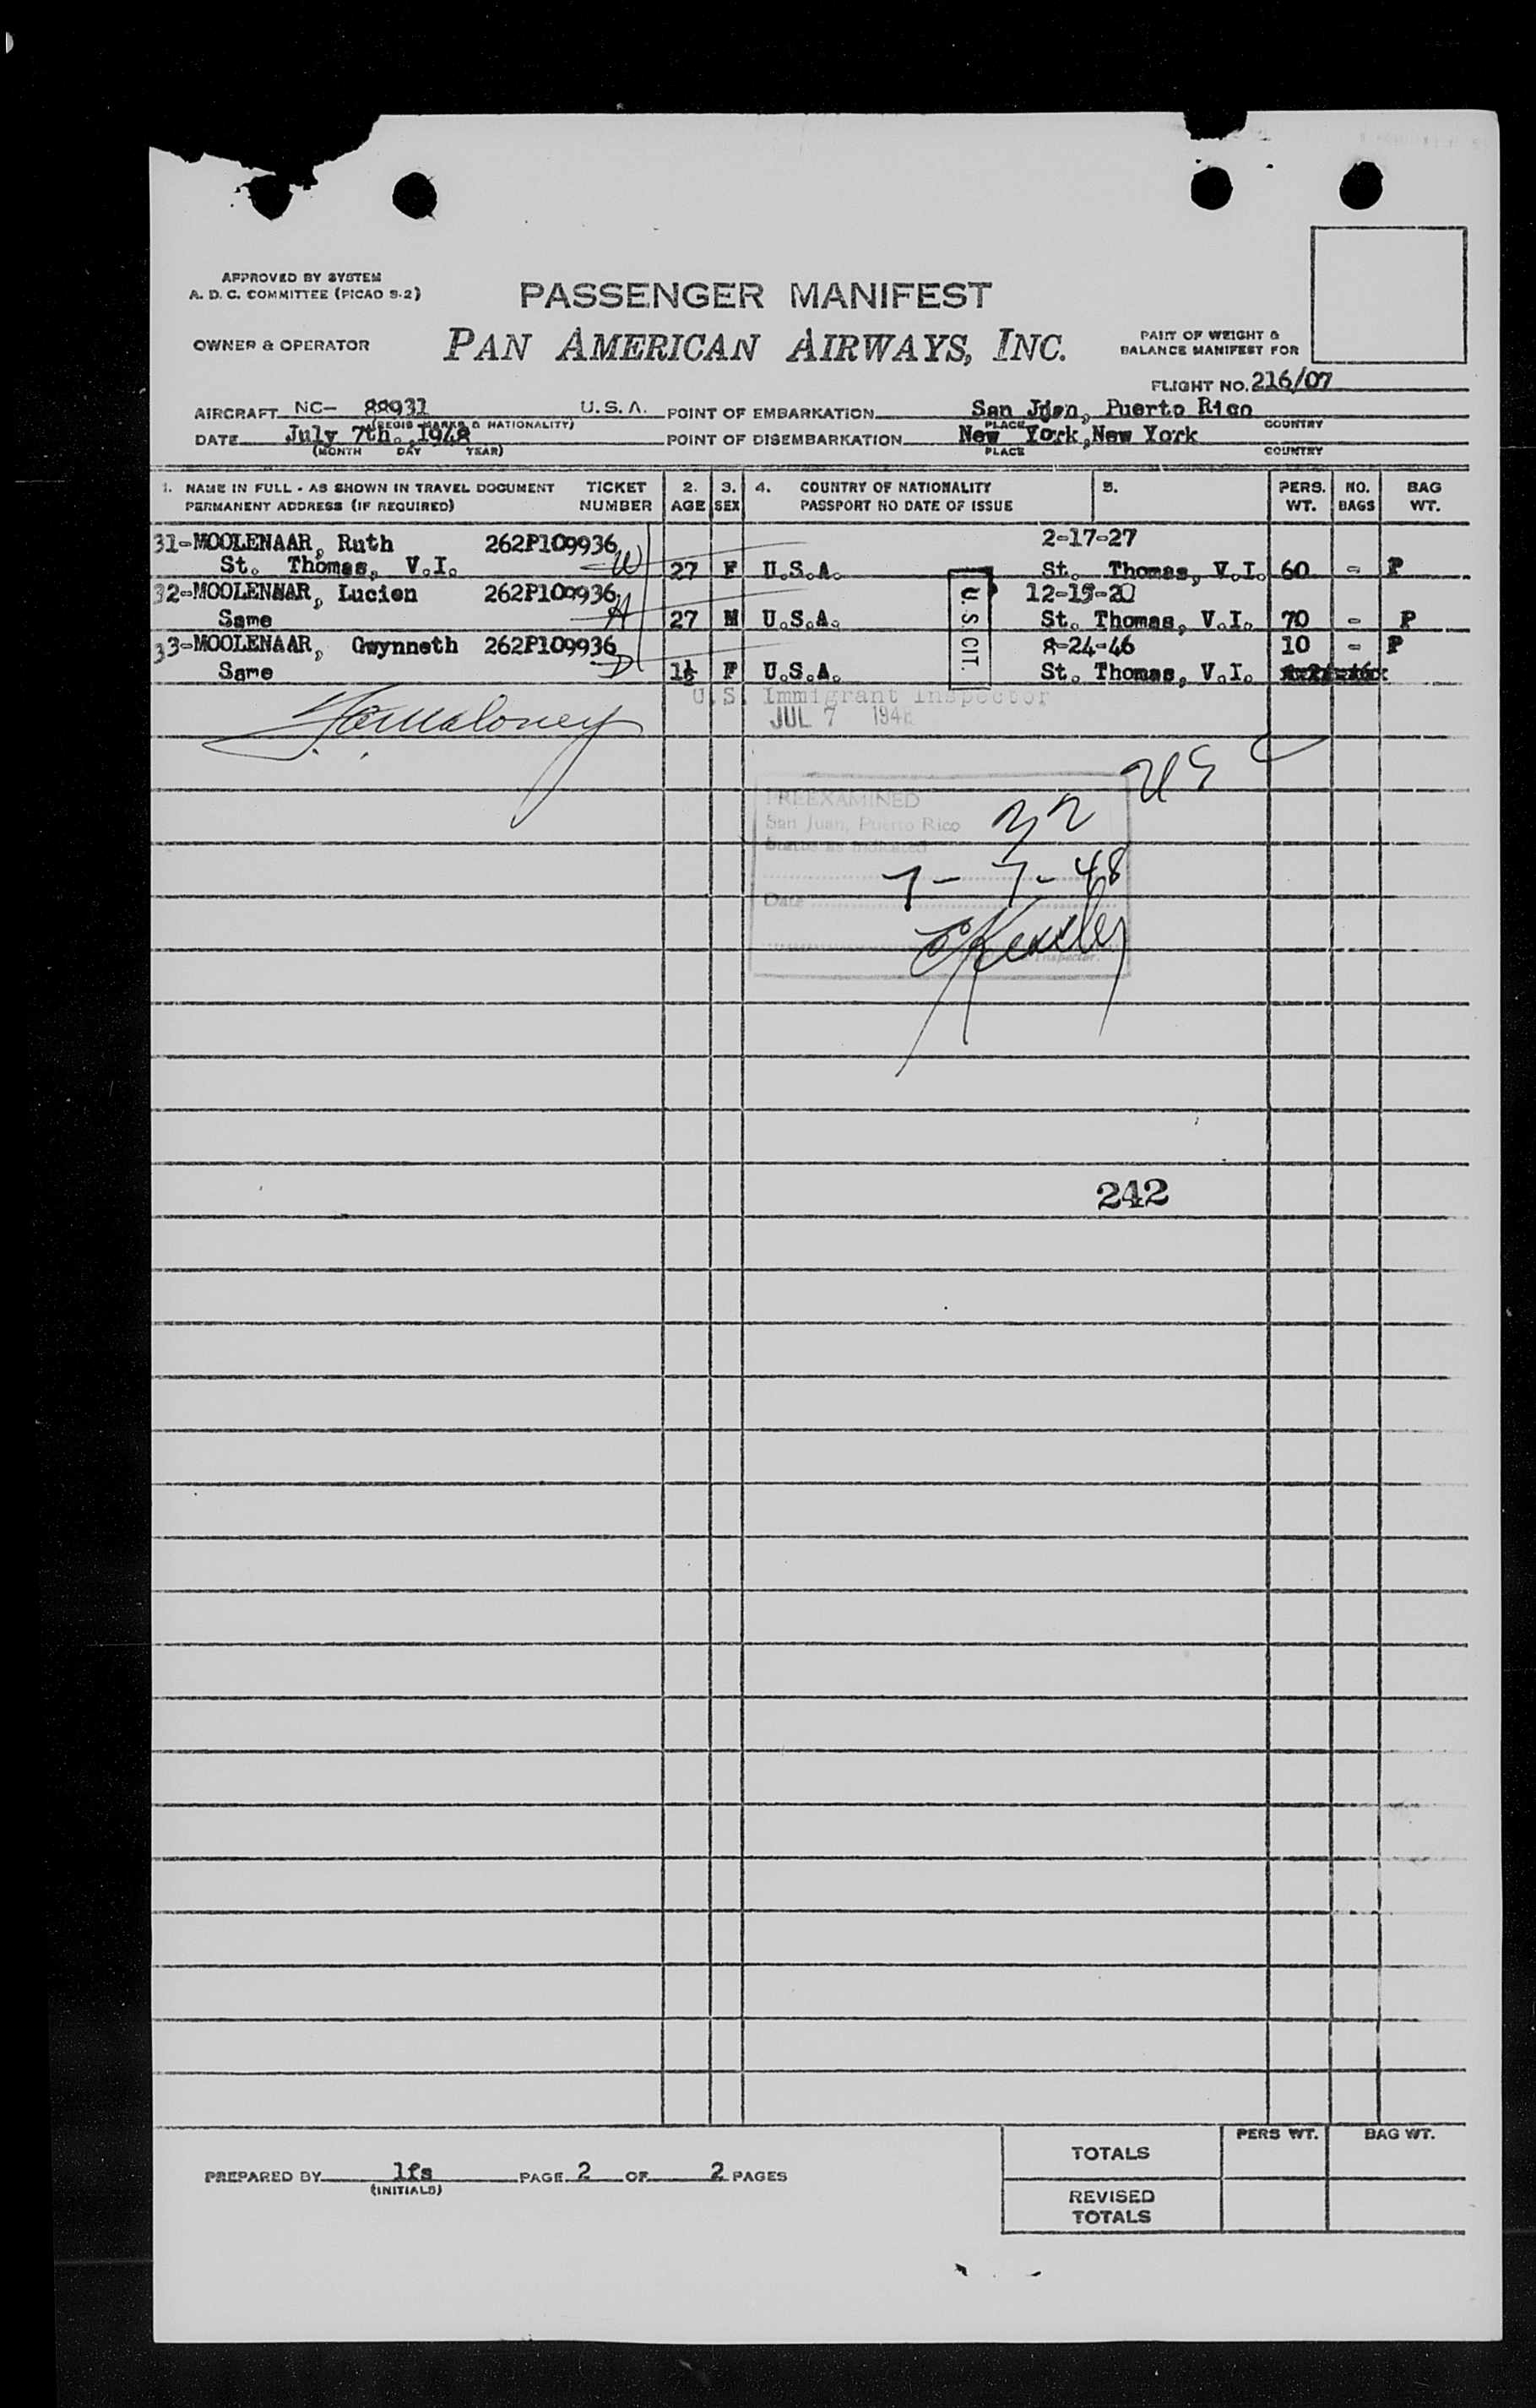 APPROVED BY SYSTEM
A. D. C. COMMITTEE (PICAO S-2)
PASSENGER MANIFEST
OWNER & OPERATOR
PAN AMERICAN AIRWAYS, INC.
PART OF WEIGHT &
BALANCE MANIFEST FOR
FLIGHT NO. 216/07
AIRCRAFT NC- 88931 U.S.A. POINT OF EMBARKATION San Juan, Puerto Rico
(REGIS MARKS & NATIONALITY) PLACE COUNTRY
DATE July 7th. ,1948 POINT OF DISEMBARKATION New York,New York
(MONTH DAY YEAR) PLACE COUNTRY
1. NAME IN FULL - AS SHOWN IN TRAVEL DOCUMENT TICKET 2. 3. 4. COUNTRY OF NATIONALITY 5. PERS. NO. BAG
PERMANENT ADDRESS (IF REQUIRED) NUMBER AGE SEX PASSPORT NO DATE OF ISSUE WT. BAGS WT.
31-MOOLENAAR, Ruth 262P109936 2-17-27
St. Thomas, V.I. W 27 F U.S.A. St. Thomas, V.I. 60 - P
32-MOOLENAAR, Lucien 262P109936 12-15-20
Same A 27 M U.S.A. St. Thomas, V.I. 70 - P
33-MOOLENAAR, Gwynneth 262P109936 8-24-46 10 - P
Same D 1½ F U.S.A. St. Thomas, V.I.
U.S. CIT.
U.S. Immigrant Inspector
JUL 7 1948
USC
PREEXAMINED
San Juan, Puerto Rico
Status as indicated
32
7-7-48
Date
Inspector.
242
PREPARED BY lfs PAGE 2 OF 2 PAGES
(INITIALS)
PERS WT. BAG WT.
TOTALS
REVISED
TOTALS